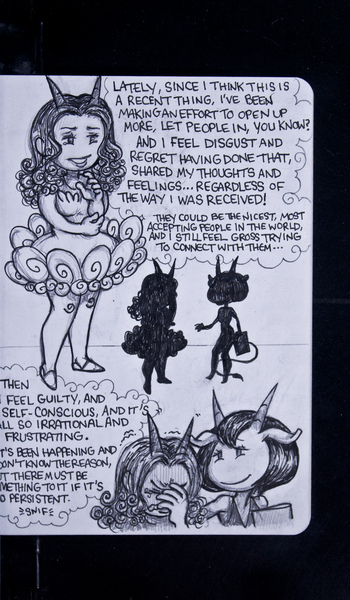 LATELY, SINCE I THINK THIS IS
A RECENT THING, I'VE BEEN
MAKING AN EFFORT TO OPEN UP
MORE, LET PEOPLE IN, YOU KNOW?
AND I FEEL DISGUST AND
REGRET HAVING DONE THAT,
SHARED MY THOUGHTS AND
FEELINGS... REGARDLESS OF
THE WAY I WAS RECEIVED!
THEY COULD BE THE NICEST, MOST
ACCEPTING PEOPLE IN THE WORLD,
AND I STILL FEEL GROSS TRYING
TO CONNECT WITH THEM...
THEN
I FEEL GUILTY, AND
SELF-CONSCIOUS, AND IT'S
ALL SO IRRATIONAL AND
FRUSTRATING.
IT'S BEEN HAPPENING AND
DON'T KNOW THE REASON,
UT THERE MUST BE
METHING TO IT IF IT'S
O PERSISTENT.
SNIF